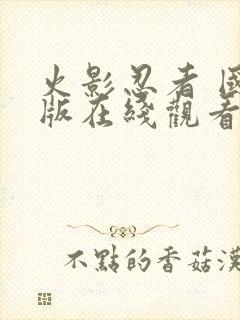 火影忍者 國
版在綫觀看
不點的香菇漢